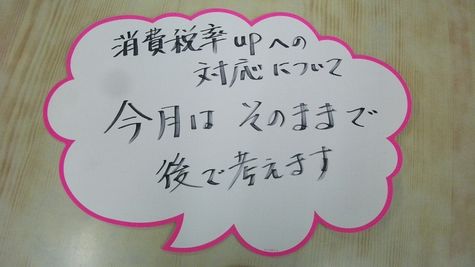 消費税率upへの
対応について
今月は そのままで
後で考えます